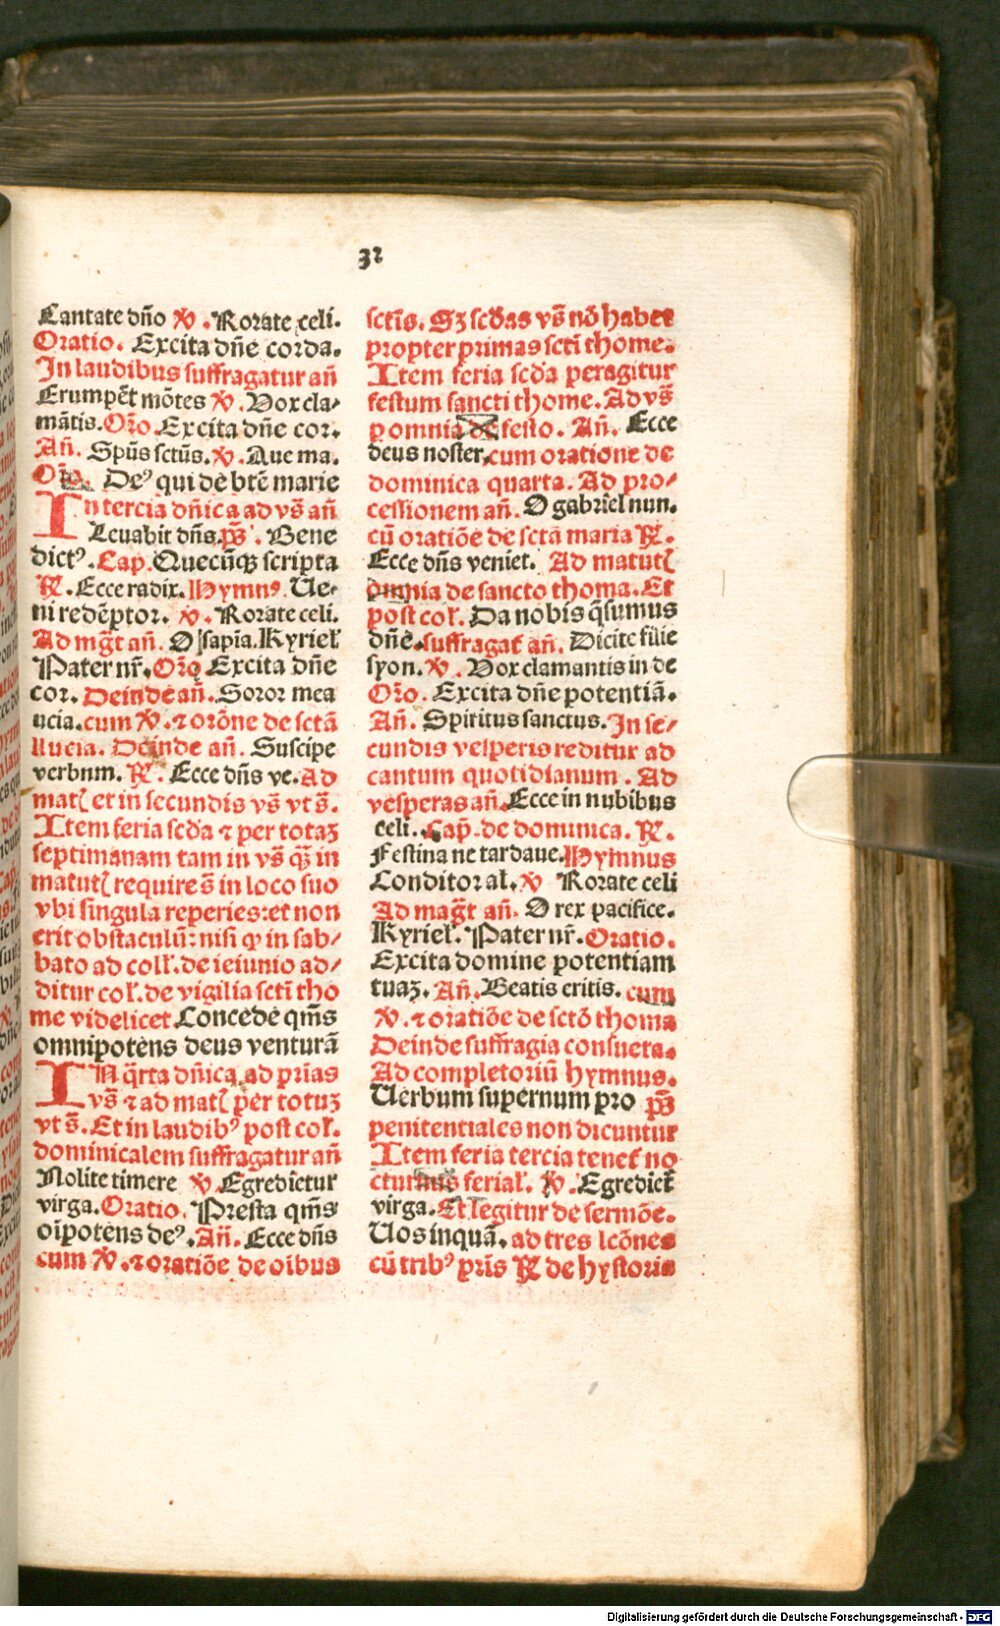 32
Cantate dño ꝟ. Rorate celi.
Oratio. Excita dñe corda.
In laudibus suffragatur añ
Erumpẽt mõtes ꝟ. Vox cla⸗
mãtis. Orõ. Excita dñe cor.
Añ. Spũs sctũs. ꝟ. Aue ma.
Orõ. Deꝰ qui de btẽ marie
In tercia dñica ad vs̃ añ
Leuabit dñs. ps̃. Bene
dictꝰ. Cap. Quecũqꝫ scripta
℟. Ecce radix. Hymnꝰ. Ue⸗
ni redẽptor. ꝟ. Rorate celi.
Ad mg̃t añ. O sapia. Kyriel̃
Pater nr̃. Orõ Excita dñe
cor. Deinde añ. Soror mea
ucia. cum ꝟ. ⁊ orõne de sctã
llucia. Deinde añ. Suscipe
verbum. ℟. Ecce dñs ve. Ad
mat̃ et in secundis vs̃ vt s̃.
Item feria scd̃a ⁊ per totaꝫ
septimanam tam in vs̃ qꝫ̃ in
matut̃ require s̃ in loco suo
vbi singula reperies: et non
erit obstaculũ: nisi ꝙ in sab⸗
bato ad coll̃. de ieiunio ad⸗
ditur col̃. de vigilia sctĩ tho
me videlicet Concede qm̃s
omnipotẽns deus venturã
IN q̃rta dñica. ad prĩas
vs̃ ⁊ ad mat̃ per totuꝫ
vt s̃. Et in laudibꝰ post col̃.
dominicalem suffragatur añ
Nolite timere ꝟ. Egredĩetur
virga. Oratio. Presta qm̃s
oĩpotẽns deꝰ. Añ. Ecce dñs
cum ꝟ. ⁊ oratiõe de oĩbus
sctĩs. Sꝫ scd̃as vs̃ nõ habet
propter primas sctĩ thome.
Item feria scd̃a peragitur
festum sancti thome. Ad vs̃
p omnia de festo. Añ. Ecce
deus noster, cum oratione de
dominica quarta. Ad pro⸗
cessionem añ. O gabriel nun.
cũ oratiõe de sctã maria ℟.
Ecce dñs veniet. Ad matut̃
omnia de sancto thoma. Et
post col̃. Da nobis q̃sumus
dñe. suffragat̃ añ. Dicite filie
syon. ꝟ. Vox clamantis in de
Orõ. Excita dñe potentiã.
Añ. Spiritus sanctus. In se⸗
cundis vesperis reditur ad
cantum quotidianum. Ad
vesperas añ. Ecce in nubibus
celi. Cap̃. de dominica. ℟.
Festina ne tardaue. Hymnus
Conditor al. ꝟ Rorate celi
Ad mag̃t añ. O rex pacifice.
Kyriel̃. Pater nr̃. Oratio.
Excita domine potentiam
tuaꝫ. Añ. Beatis eritis. cum
ꝟ. ⁊ oratiõe de sctõ thoma
Deinde suffragia consueta.
Ad completoriũ hymnus.
Uerbum supernum pro ps̃
penitentiales non dicuntur
Item feria tercia tenet̃ no
cturnus ferial̃. ꝟ. Egrediet̃
virga. Et legitur de sermõe.
Uos inquã. ad tres lcõnes
cũ tribꝰ prĩs ℟ de hystoria
Digitalisierung gefördert durch die Deutsche Forschungsgemeinschaft - DFG